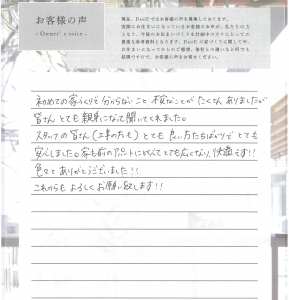 お客様の声
- Owner's voice -
初めての家づくりで分からないこと 不安なことが たくさん ありましたが
皆さん とても 親身になって聞いてくれました。
スタッフの皆さん(工事の方も)とても 良い方たちばかりで とても
安心しました。家も前のアパートに比べてとても広くなり、快適です!!
色々と ありがとうございました!!
これからも よろしくお願い致します!!